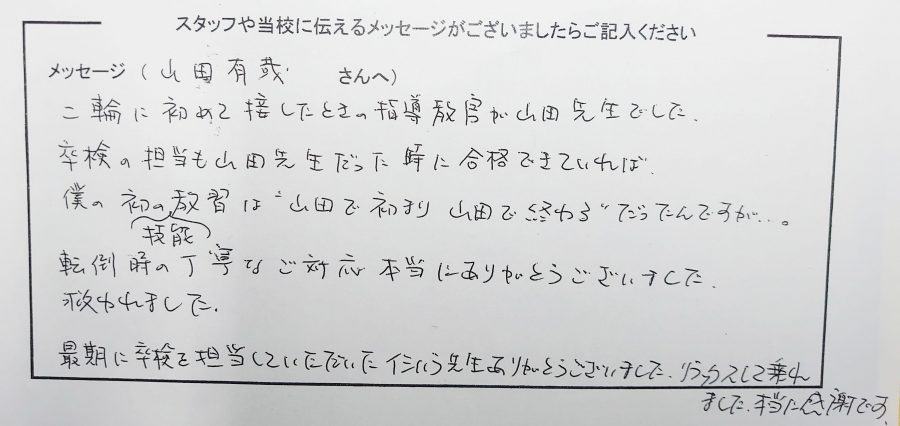 スタッフや当校に伝えるメッセージがございましたらご記入ください
メッセージ(山田有哉 さんへ)
二輪に初めて接したときの指導教官が山田先生でした.
卒検の担当も山田先生だった時に合格できていれば.
僕の初の教習は“山田で初まり 山田で終わる”だったんですが…。
技能
転倒時の丁寧なご対応 本当にありがとうございました.
救われました.
最期に卒検を担当していただいた 先生ありがとうございました.リラックスして乗れ
ました.本当に感謝です.